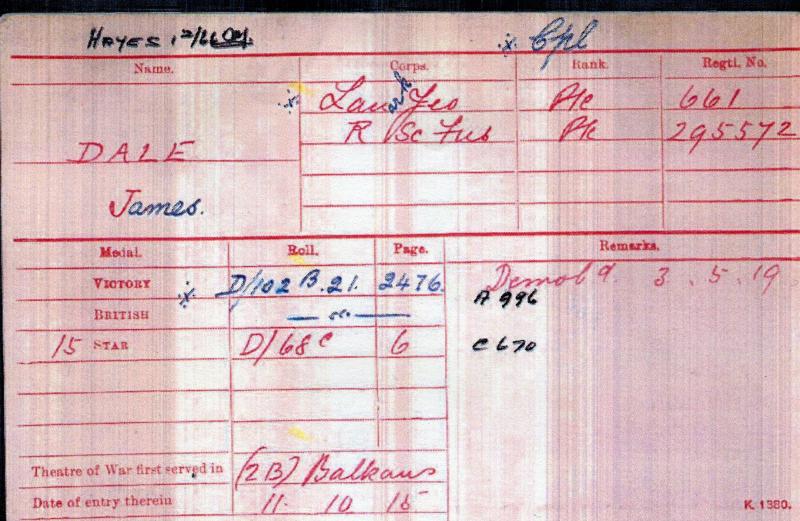 HAYES 12/6601 Cpl
Name. Corps. Rank. Regtl. No.
Lanark Yeo Pte 661
R Sc Fus Pte 295572
DALE
James.
Medal. Roll. Page. Remarks.
VICTORY D/102 B.21. 2476. Demobd 3.5.19
A 996
BRITISH — do —
15 STAR D/68C 6 C 670
Theatre of War first served in (2B) Balkans
Date of entry therein 11. 10 15
K. 1380.